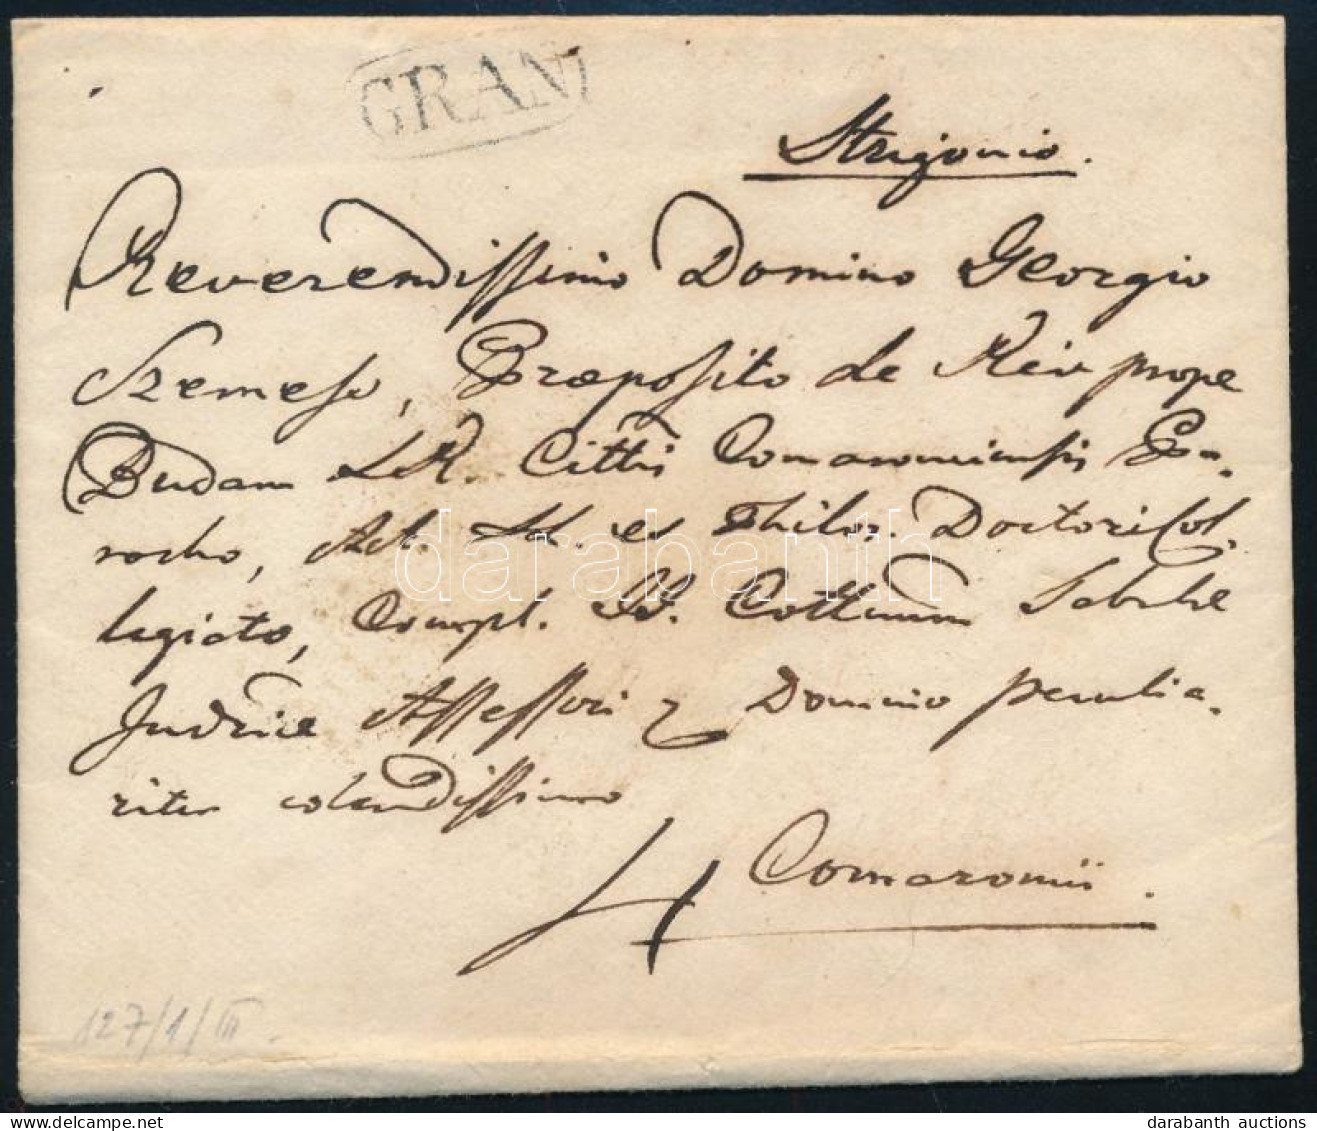 GRAN
Strigonio.
Reverendissimo Domino Georgio
Szemeso, Præposito de Rév prope
Budam LR. Cittis Comaromiensis Pa-
rocho, AA. LL. et Philos. Doctori Col-
legiato, Compl. II. Cottuum Tabulae
Judriae Assessori z Domino peculia-
riter colendissimo
4 Comaromii.
127/1/III.
darabanth
darabanth auctions